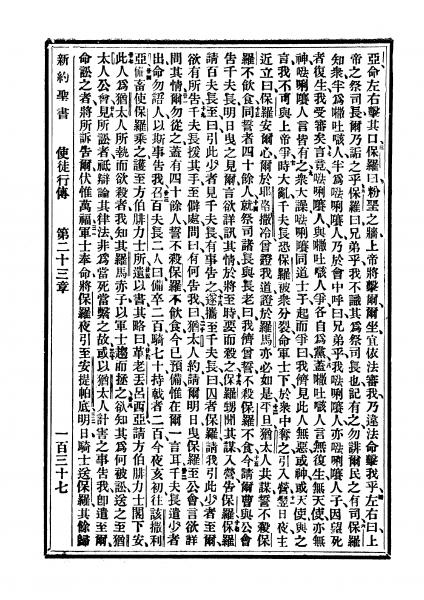 亞命左右擊其口保羅曰粉堊之牆上帝將擊爾爾坐宜依法審我乃違法命擊我乎左右曰上
帝之祭司長爾乃詬之乎保羅曰兄弟乎我不識其為祭司長也記有之勿誹爾民之有司保羅
知衆半為吐嘅人半為唎人乃於會中呼曰兄弟乎我唎人亦唎人子因望死
者復生我受審矣言竟唎人與吐嘅人爭各自為黨蓋吐嘅人言無復生無天使亦無
神唎人言皆有之衆大譟唎同道士子起而爭曰我儕見此人無惡或神或天使與之
言我不可與上帝爭時大亂千夫長恐保羅被衆分裂命軍士下於衆中奪之引入營翌日夜主
近立曰保羅安爾心爾於耶路撒冷曾證我道證於羅馬亦必如是平旦猶太人共謀誓不殺保
羅不飲食同誓者四十餘人就祭司諸長與長老曰我儕嘗誓不殺保羅不食今請爾曹與公會
告千夫長明日曳之見爾言欲詳訊其情於將至時要而殺之保羅甥聞其謀入營告保羅保羅
請百夫長至曰引此少者見千夫長有事告之遂攜至千夫長曰囚者保羅請我引此少者至爾
欲有所告千夫長援其手至僻處問曰有何告我曰猶太人約請爾明日曳保羅至公會言欲詳
問其情爾勿從之蓋有四十餘人誓不殺保羅不飲食今已預備惟在爾一言耳千夫長遣少者
出命勿語人以斯事告我召百夫長二人曰備卒二百騎七十持戟者二百今夜亥初往該撒利
亞備畜使保羅乘之護至方伯腓力士所遺以書其略曰革老丟呂西亞請方伯腓力士閣下安
此人為猶太人所執而欲殺者我知其羅馬赤子以軍士趨而拯之欲知其為何被訟送之至猶
太人公會見所訟者祗辯論其律法非為當死當繫之故或以猶太人計害之事告我卽遣至爾
命訟之者將所訴告爾伏惟萬福軍士奉命將保羅夜引至安提帕底明日騎士送保羅其餘歸
新約聖書 使徒行傳 第二十三章 一百三十七